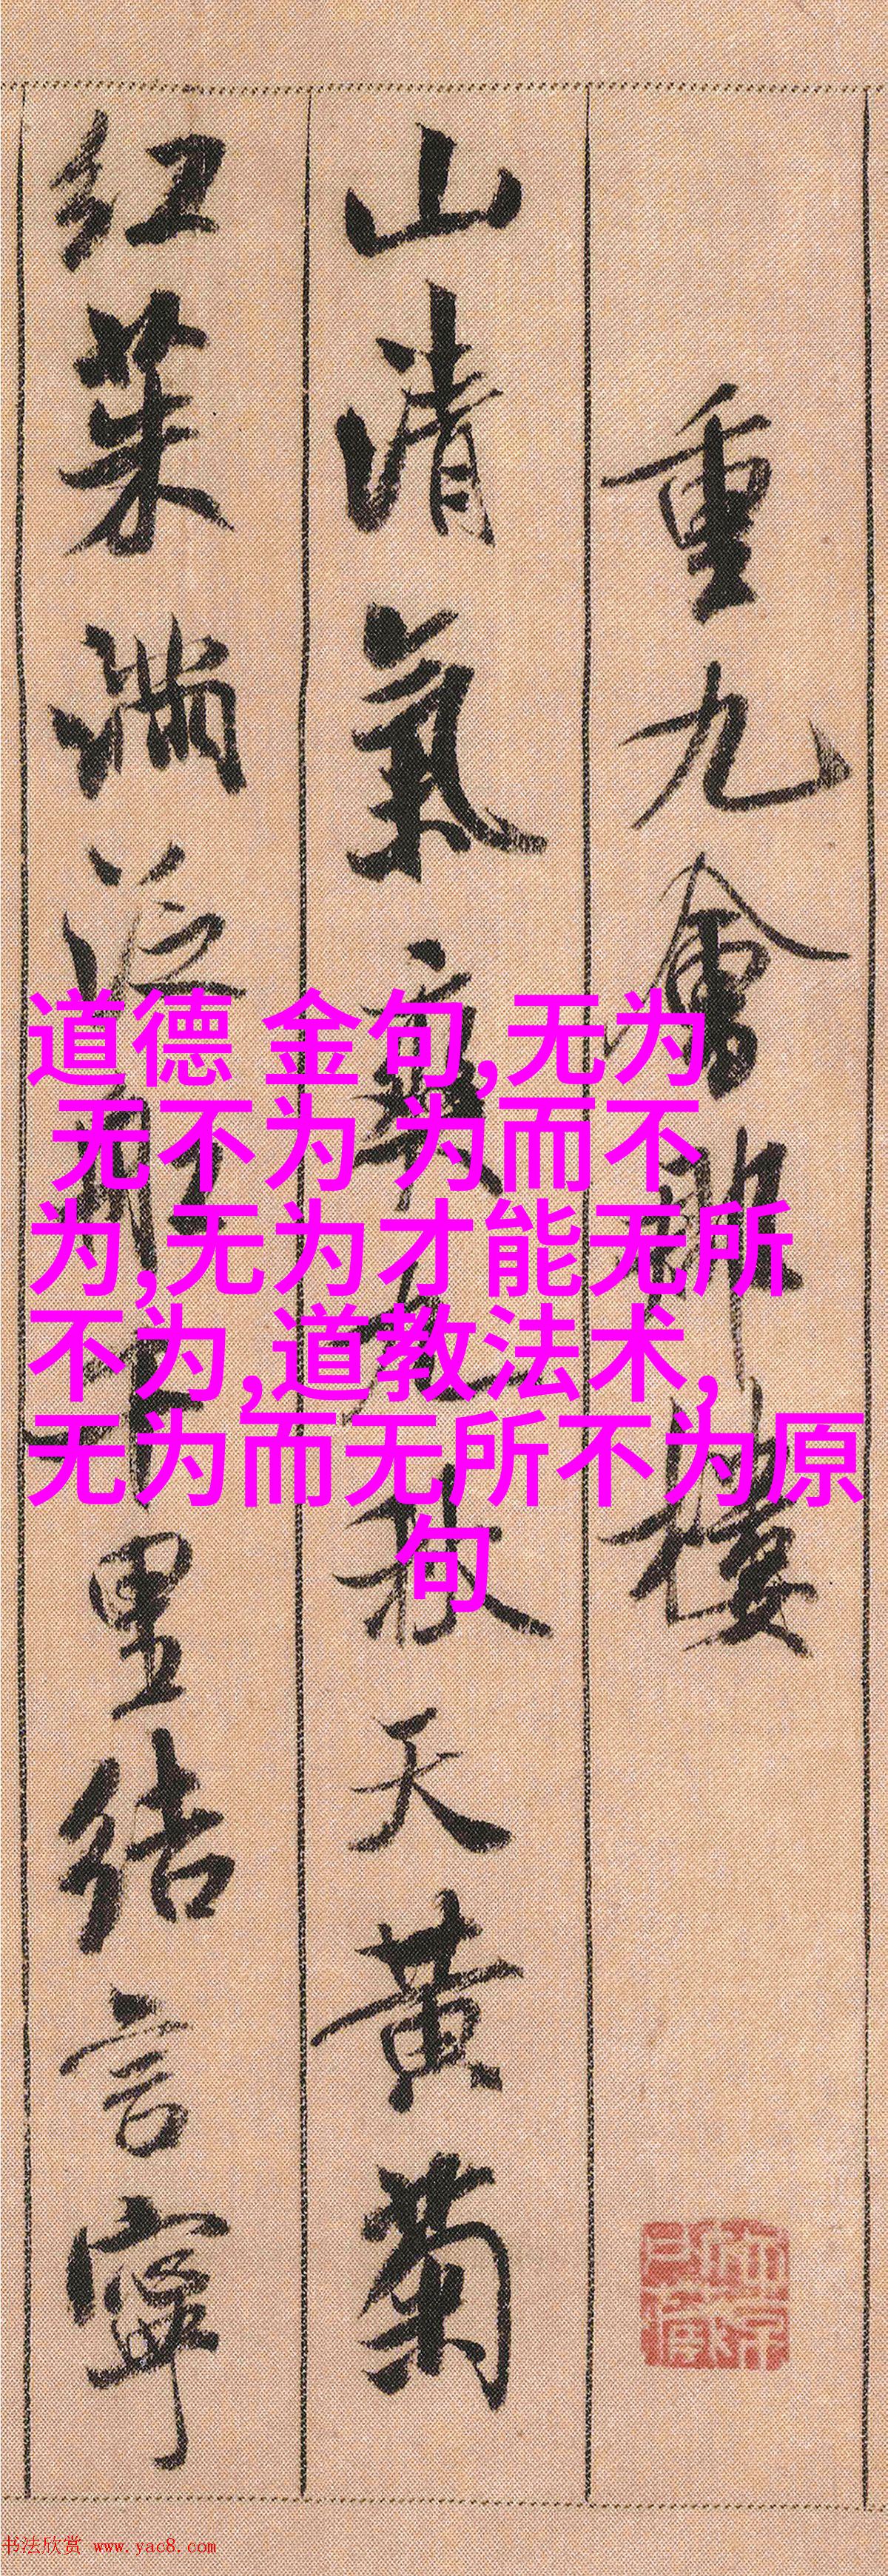 重九會郡樓
山清氣爽九秋天黄菊
紅茱滿泛船千里結言寧
道德 金句,无为
无不为 为而不
为,无为才能无所
不为,道教法术,
无为而无所不为原
句
书法欣赏 www.yac8.com